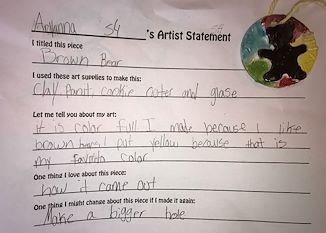 Aryanna S4 's Artist Statement
I titled this piece
Brown Bear
I used these art supplies to make this:
Clay Paint, cookie cuter and glase
Let me tell you about my art:
It is color full I made because I like
brown bears I put yellow because that is
my favorite color
One thing I love about this piece:
how it came out
One thing I might change about this piece if I made it again:
Make a bigger hole